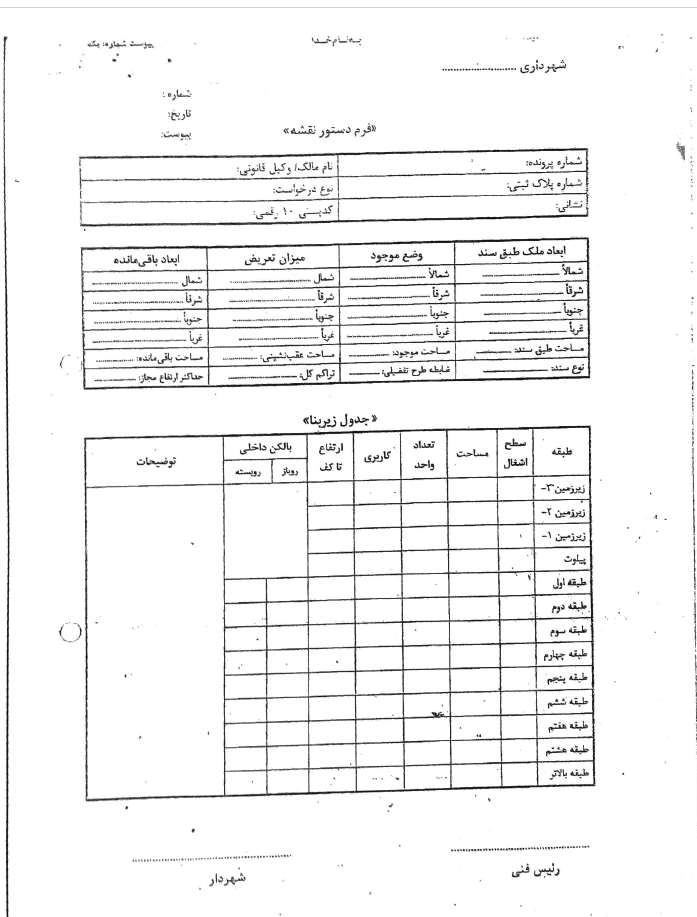 به‌نام‌خدا
پیوست شماره: یک
شهرداری ........................
شماره :
تاریخ:
پیوست:
«فرم دستور نقشه»
شماره پرونده: نام مالک/ وکیل قانونی:
شماره پلاک ثبتی: نوع درخواست:
نشانی: کدپستی ۱۰ رقمی:
ابعاد ملک طبق سند وضع موجود میزان تعریض ابعاد باقی‌مانده
شمالاً شمالاً شمال شمال
شرقاً شرقاً شرقاً شرقاً
جنوباً جنوباً جنوباً جنوباً
غرباً غرباً غرباً غرباً
مساحت طبق سند: مساحت موجود: مساحت عقب‌نشینی: مساحت باقی‌مانده:
نوع سند: ضابطه طرح تفصیلی: تراکم کل: حداکثر ارتفاع مجاز:
«جدول زیربنا»
طبقه سطح اشغال مساحت تعداد واحد کاربری ارتفاع تا کف بالکن داخلی توضیحات
روباز روبسته
زیرزمین ۳-
زیرزمین ۲-
زیرزمین ۱-
پیلوت
طبقه اول
طبقه دوم
طبقه سوم
طبقه چهارم
طبقه پنجم
طبقه ششم
طبقه هفتم
طبقه هشتم
طبقه بالاتر
رئیس فنی شهردار